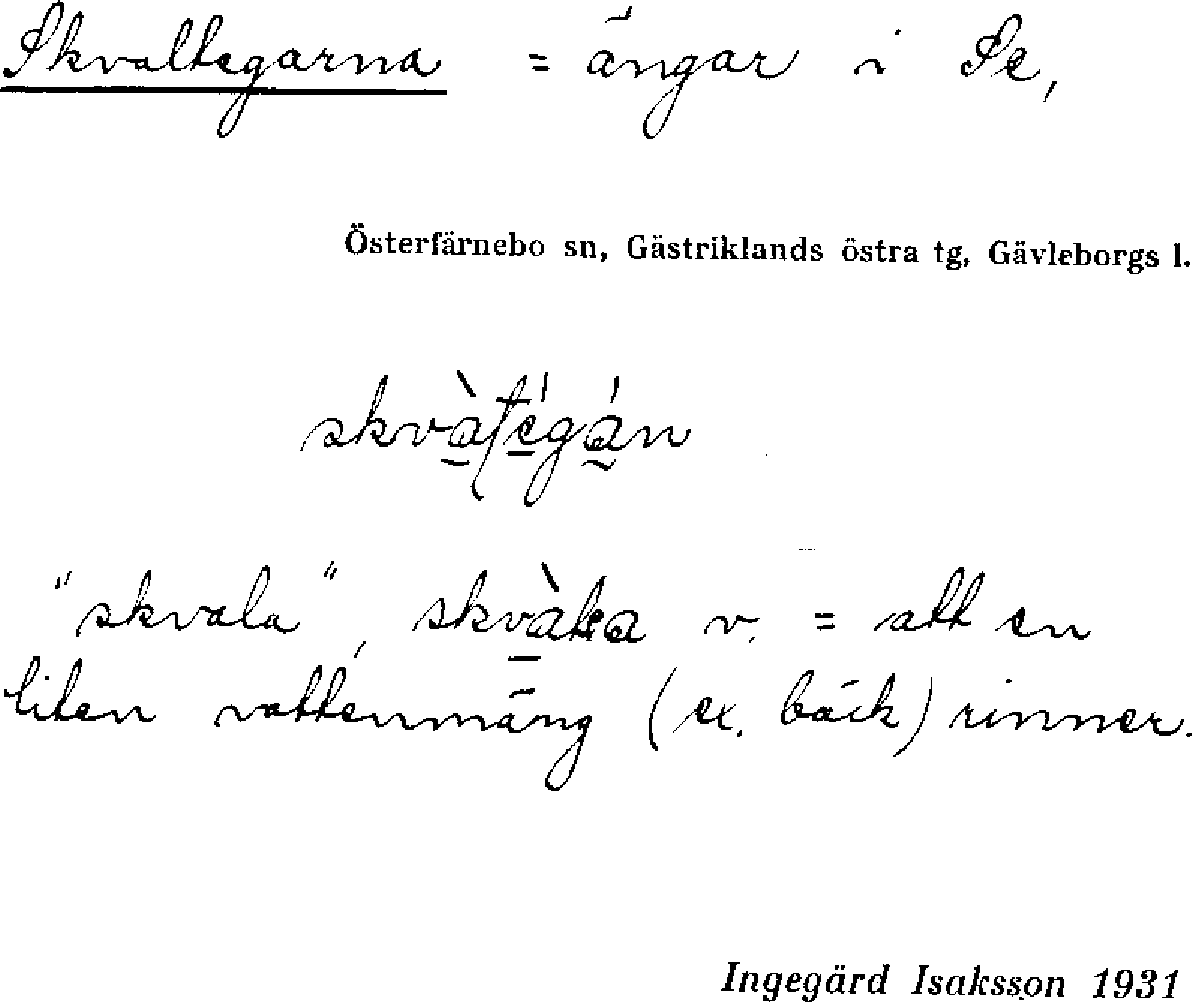 Skvaltegarna = ängar i Se,
Österfärnebo sn, Gästriklands östra tg, Gävleborgs l.
"skvala", v. = att en
liten vattenmäng (ex. bäck) rinner.
Ingegärd Isaksson 1931